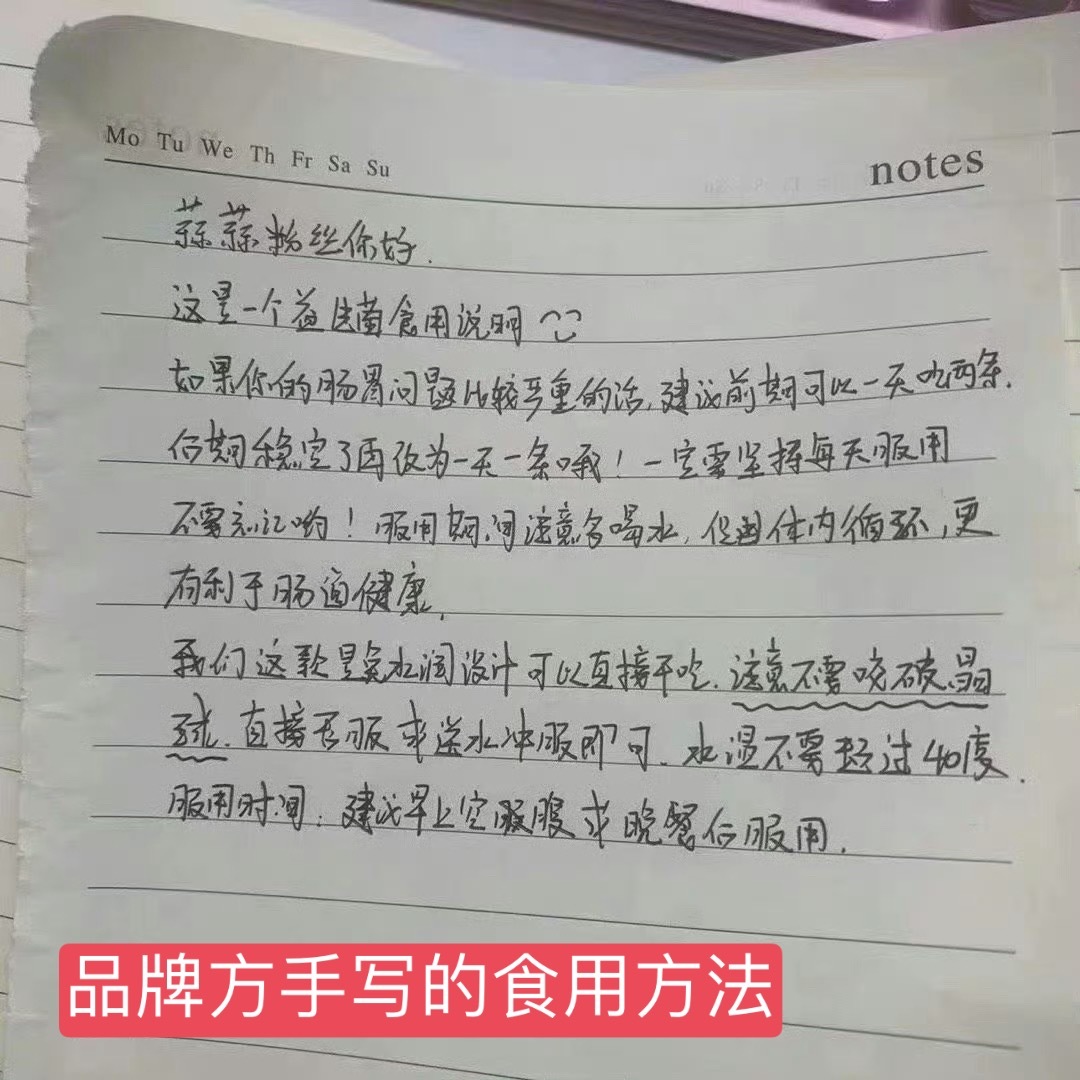 Mo Tu We Th Fr Sa Su
notes
蒜蒜粉丝你好.
这是一个益生菌食用说明
如果你的肠胃问题比较严重的话,建议前期可以一天吃两条.
后期稳定了再改为一天一条哦！一定要坚持每天服用
不要忘记哟！服用期间注意多喝水,促进体内循环,更
有利于肠道健康.
我们这款是免水润设计可以直接干吃.注意不要咬破晶
球.直接吞服或送水冲服即可.水温不要超过40度.
服用时间:建议早上空腹服或晚餐后服用.
品牌方手写的食用方法